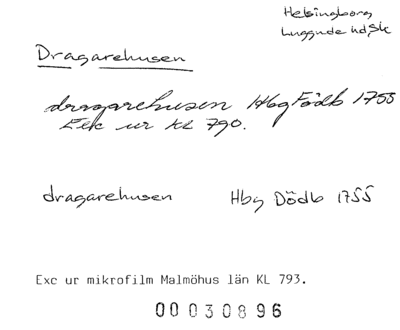 Helsingborg
Luggude hd, Sk
Dragarehusen
dragarehusen Hbg Födb 1755
Exc ur KL 790.
dragarehusen Hbg Dödb 1755
Exc ur mikrofilm Malmöhus län KL 793.
00030896